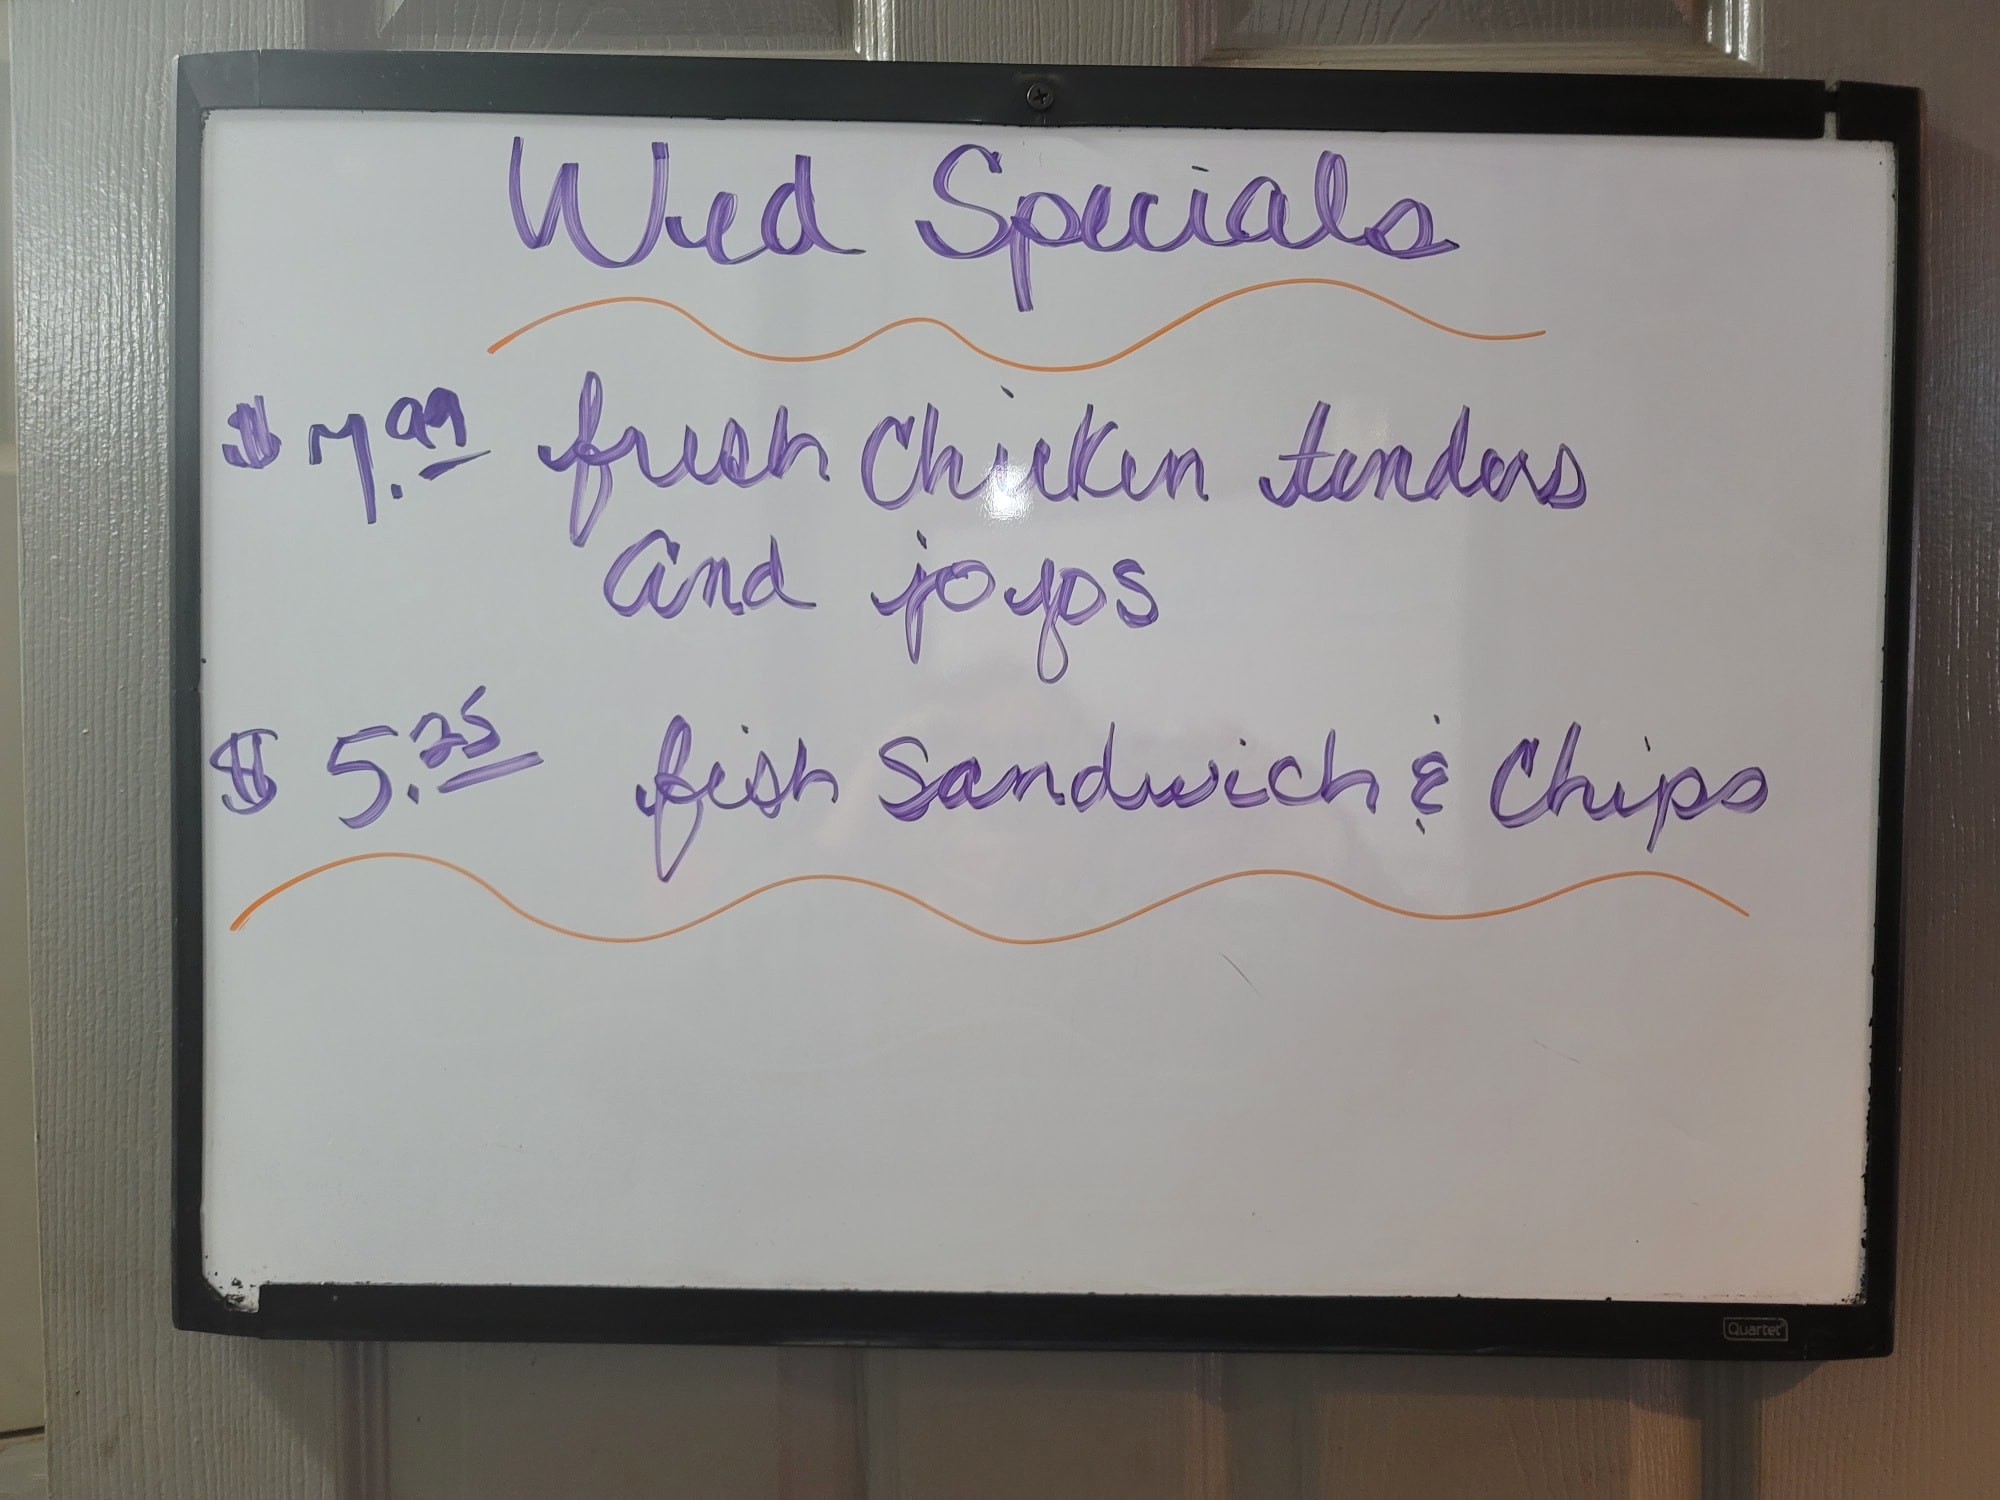 Wed Specials
$7.99 fresh Chicken tenders
and jojos
$5.25 fish Sandwich & Chips
Quartet